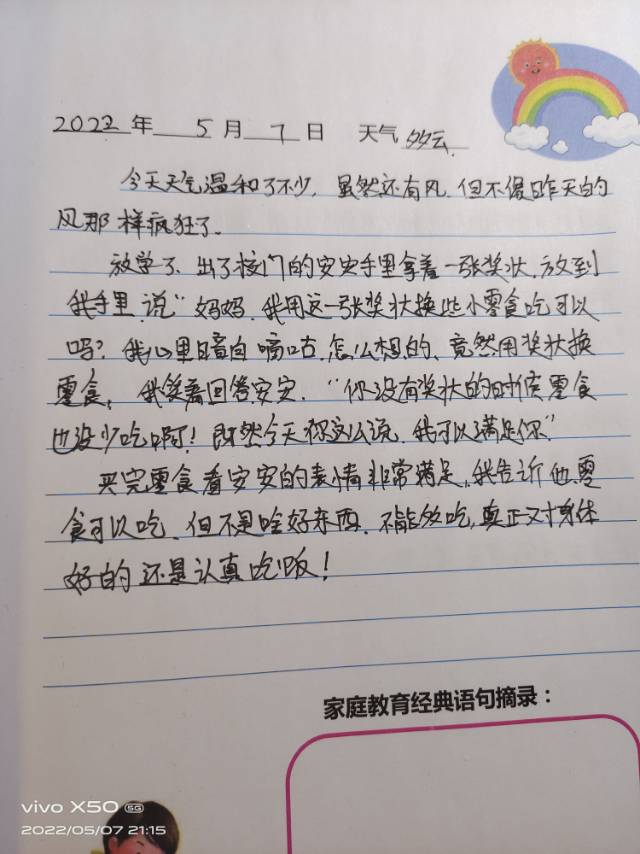 2022年 5月7日 天气 多云.
今天天气温和了不少, 虽然还有风, 但不像昨天的
风那样疯狂了.
放学了, 出了校门的安安手里拿着一张奖状, 放到
我手里, 说“妈妈, 我用这一张奖状换些小零食吃可以
吗? 我心里暗自嘀咕, 怎么想的, 竟然用奖状换
零食, 我笑着回答安安. “你没有奖状的时侯零食
也没少吃啊! 既然今天你这么说, 我可以满足你”
买完零食看安安的表情非常满足, 我告诉他, 零
食可以吃, 但不是啥好东西, 不能多吃, 真正对身体
好的还是认真吃饭!
家庭教育经典语句摘录：
vivo X50 5G
2022/05/07 21:15